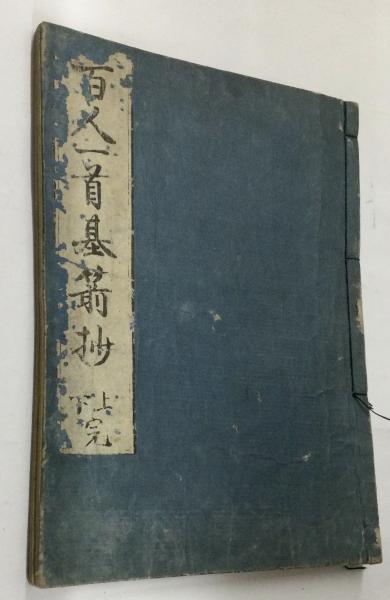 百人一首基箭抄
上下完